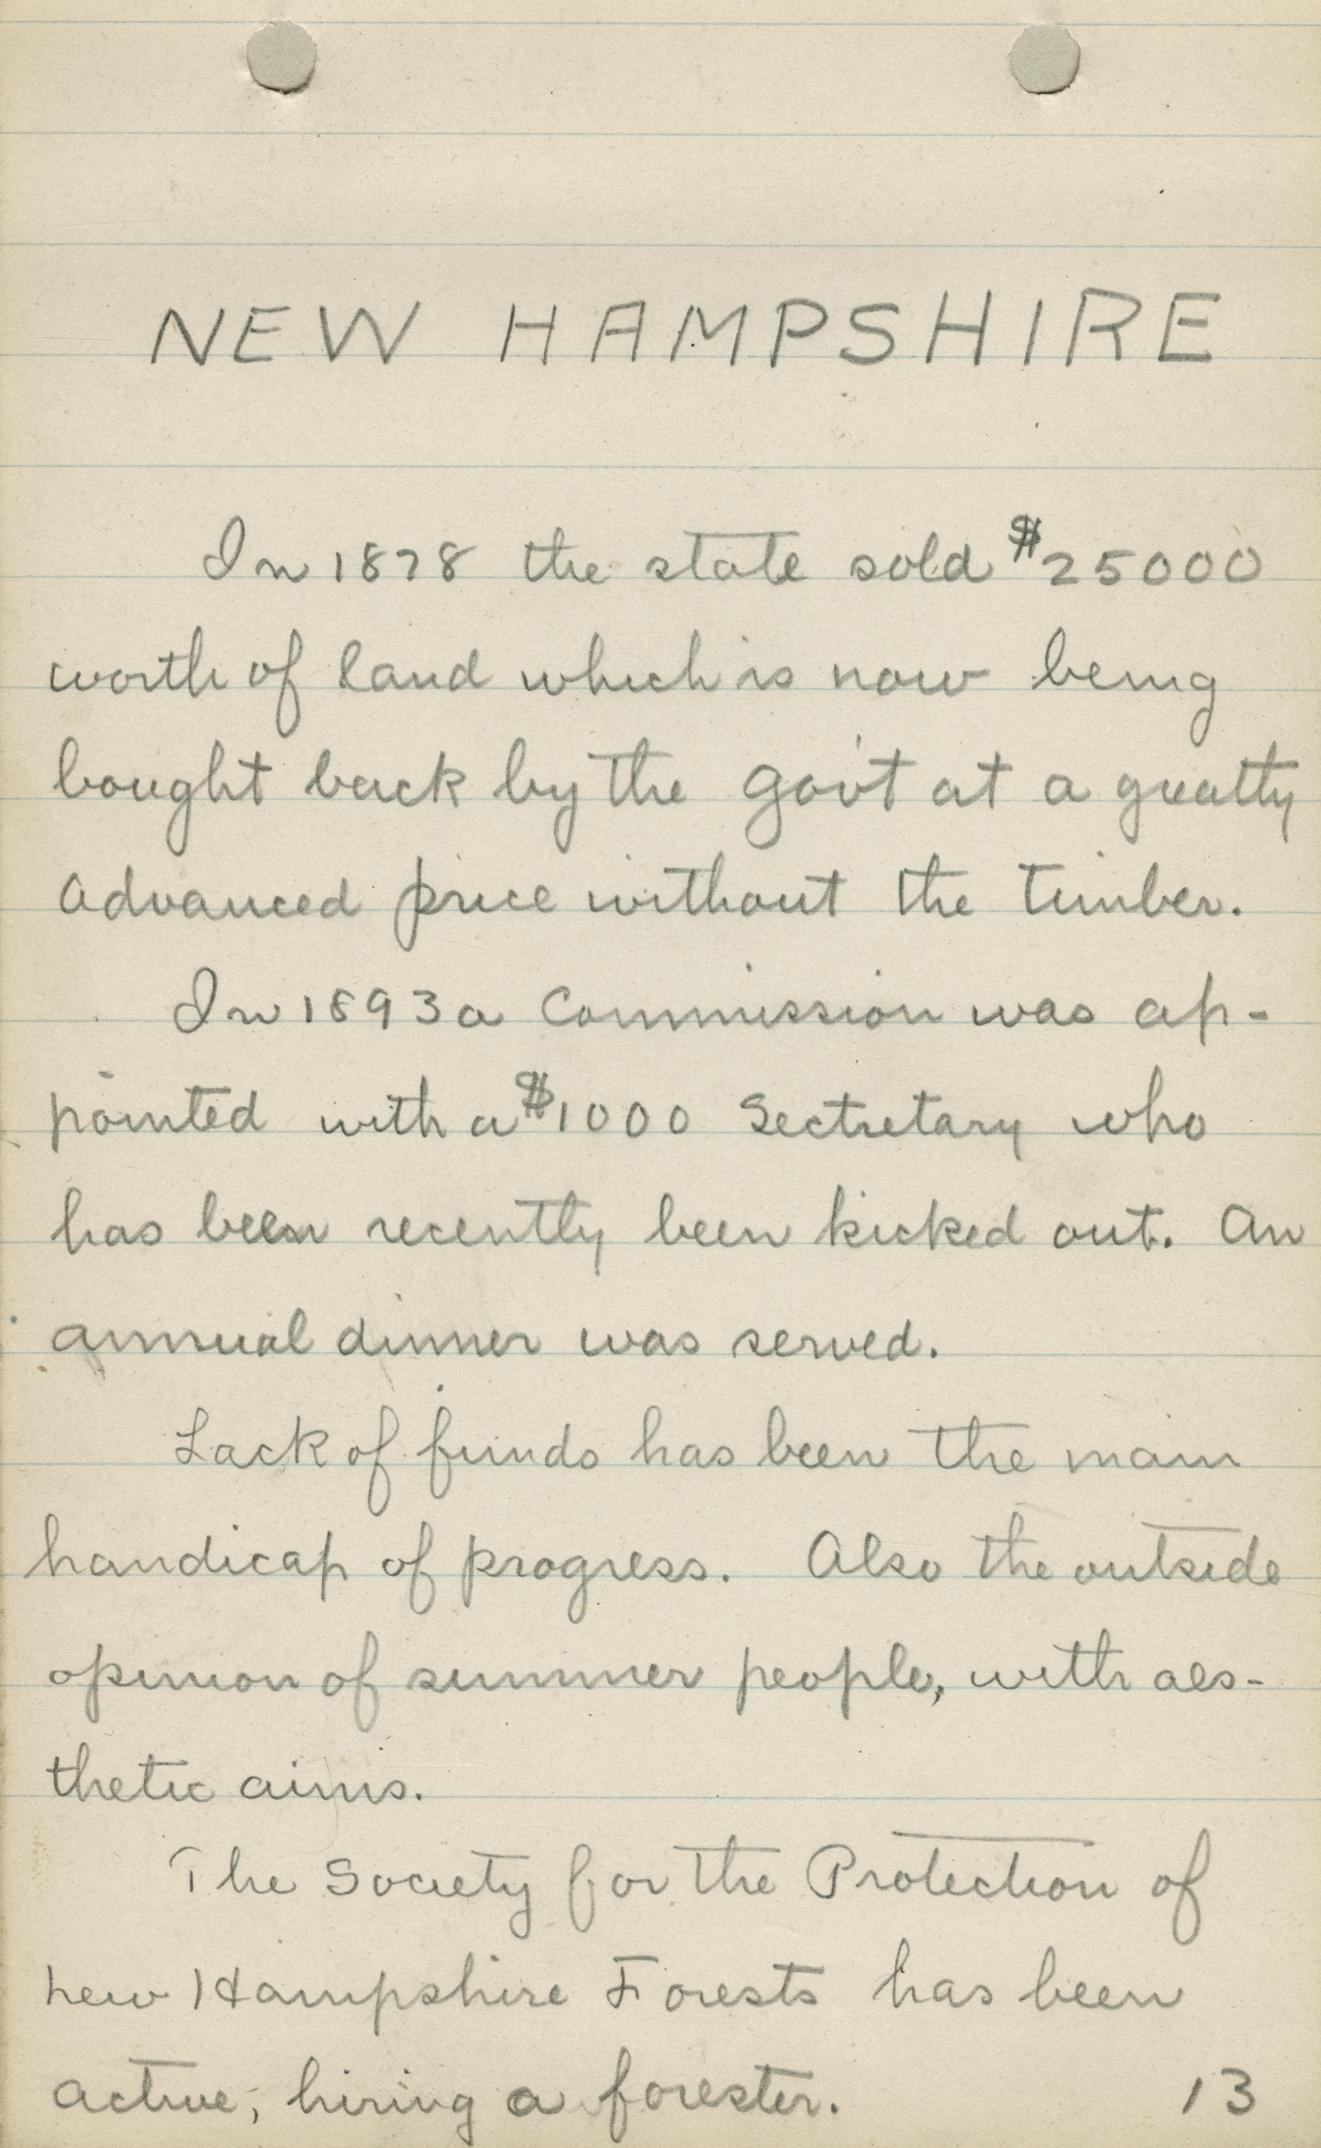 NEW HAMPSHIRE
In 1878 the state sold $25000
worth of land which is now being
bought back by the gov't at a greatly
advanced price without the timber.
In 1893 a Commission was ap-
pointed with a $1000 Sectretary who
has been recently been kicked out. An
annual dinner was served.
Lack of funds has been the main
handicap of progress. Also the outside
opinion of summer people, with aes-
thetic aims.
The Society for the Protection of
new Hampshire Forests has been
active, hiring a forester. 13